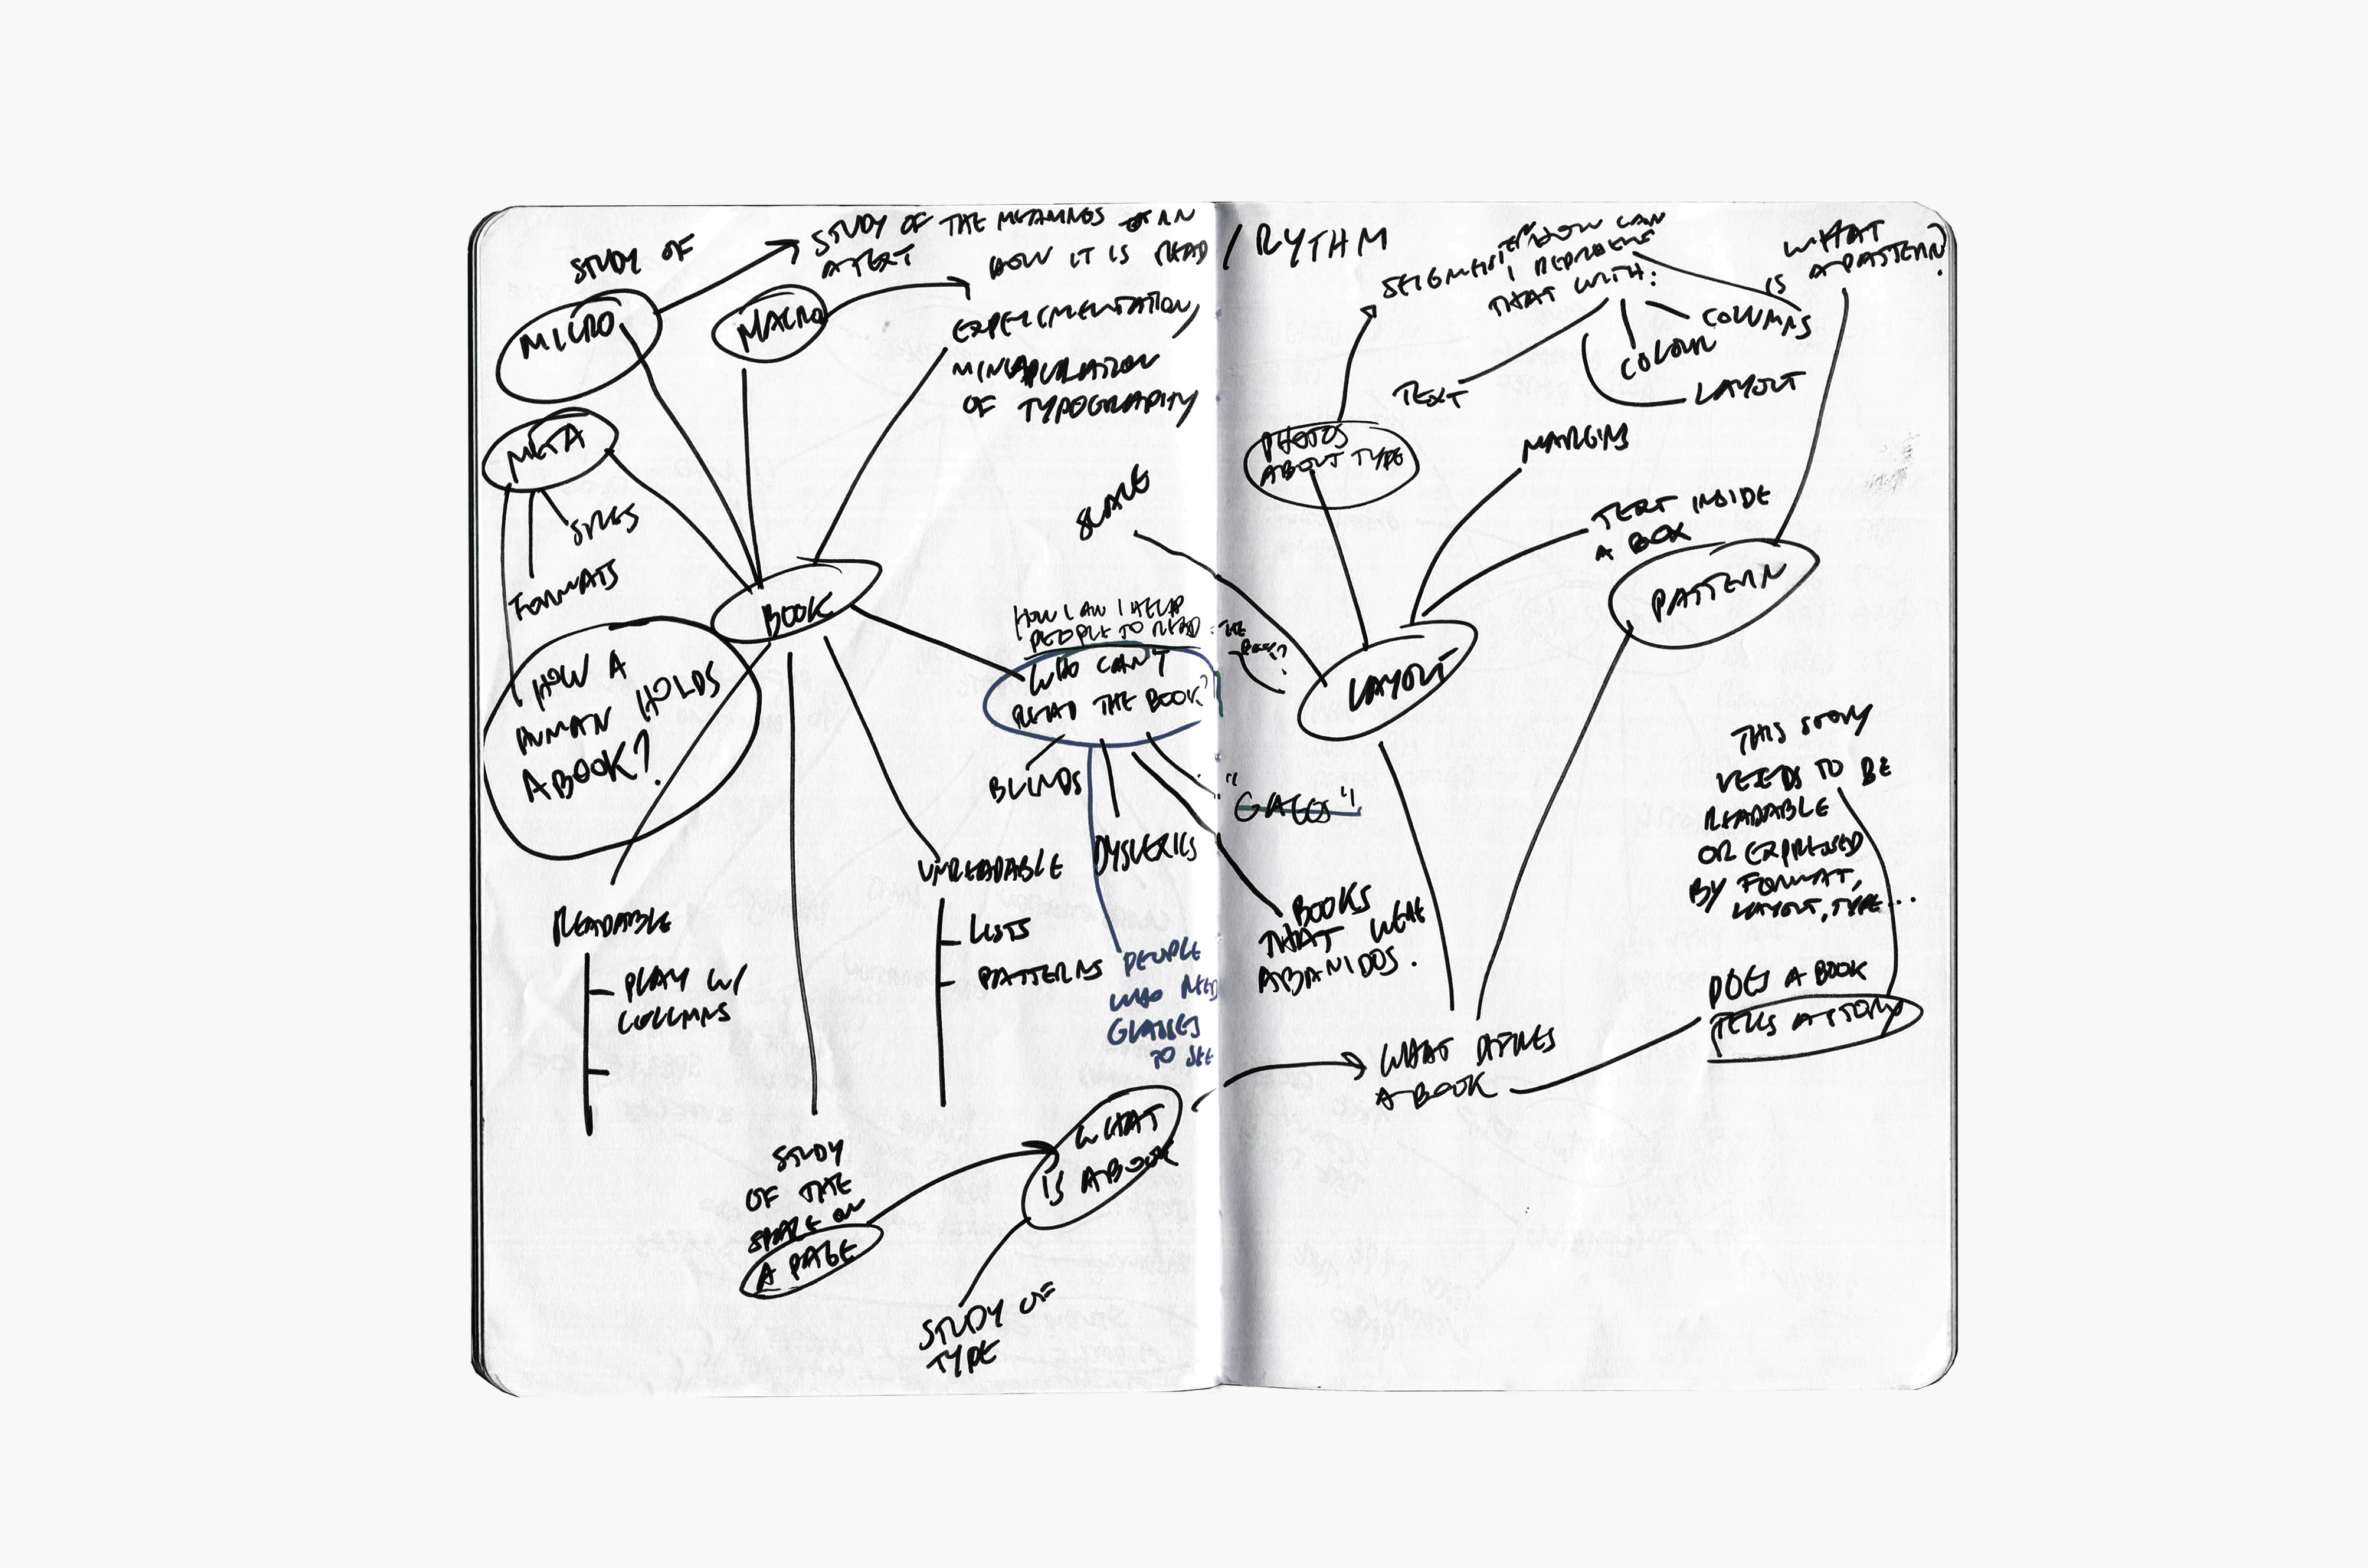 STUDY OF
MICRO
STUDY OF THE MEANINGS OF AN
A TEXT
MACRO
HOW IT IS READ
/ RYTHM
EXPERIMENTATION,
OF TYPOGRAPHY
META
SIZES
FORMATS
HOW A
HUMAN HOLDS
A BOOK?
BOOK
READABLE
PLAY W/
COLUMNS
STUDY
OF THE
SPACE ON
A PAGE
UNREADABLE
LISTS
PATTERNS
HOW I CAN I HELP
PEOPLE TO READ
WHO CAN'T
READ THE BOOK?
BLINDS
DYSLEXICS
PEOPLE
WHO NEED
GLASSES
TO SEE
"GAGOS"
BOOKS
THAT WERE
ABANIDOS.
WHAT
IS A BOOK
STUDY OF
TYPE
SCALE
HOW CAN
I REPRESENT
THAT WITH:
TEXT
COLOUR
COLUMNS
LAYOUT
WHAT
IS
A PATTERN?
PHOTOS
ABOUT TYPE
MARGINS
TEXT INSIDE
A BOX
PATTERN
LAYOUT
WHAT DEFINES
A BOOK
DOES A BOOK
TELLS A STORY
THIS STORY
NEEDS TO BE
READABLE
OR EXPRESSED
BY FORMAT,
LAYOUT, TYPE...